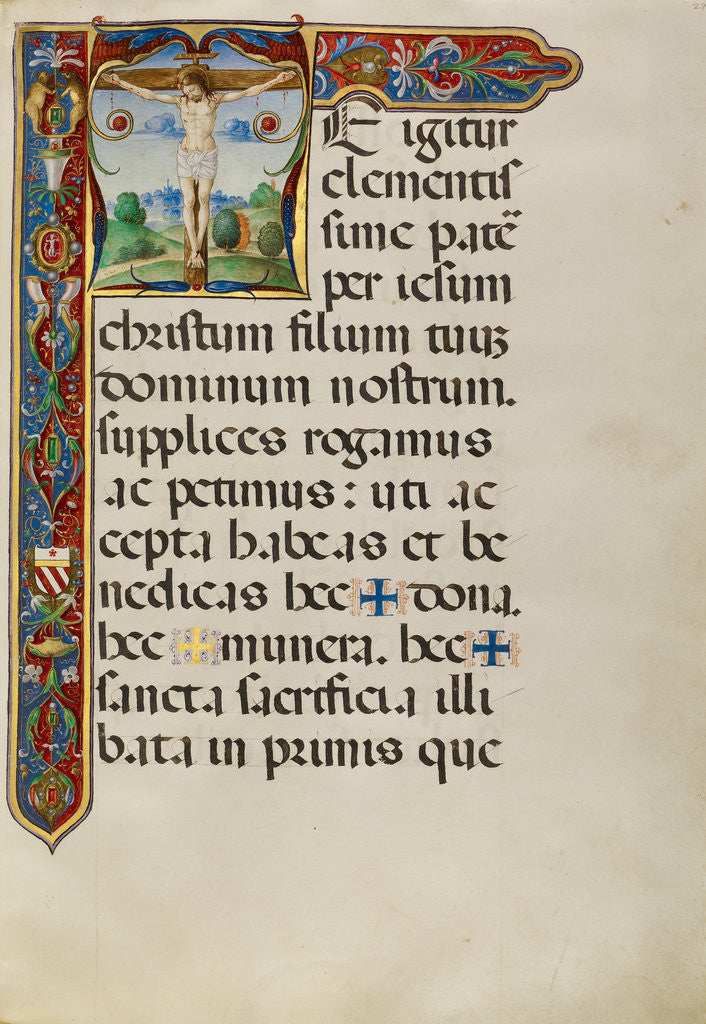 TE igitur
clementis
sime patē
per iesum
christum filium tuuꝫ
dominum nostrum.
supplices rogamus
ac petimus: uti ac
cepta habeas et be
nedicas hec ✠ dona.
hec ✠ munera. hec ✠
sancta sacrificia illi
bata in primis que